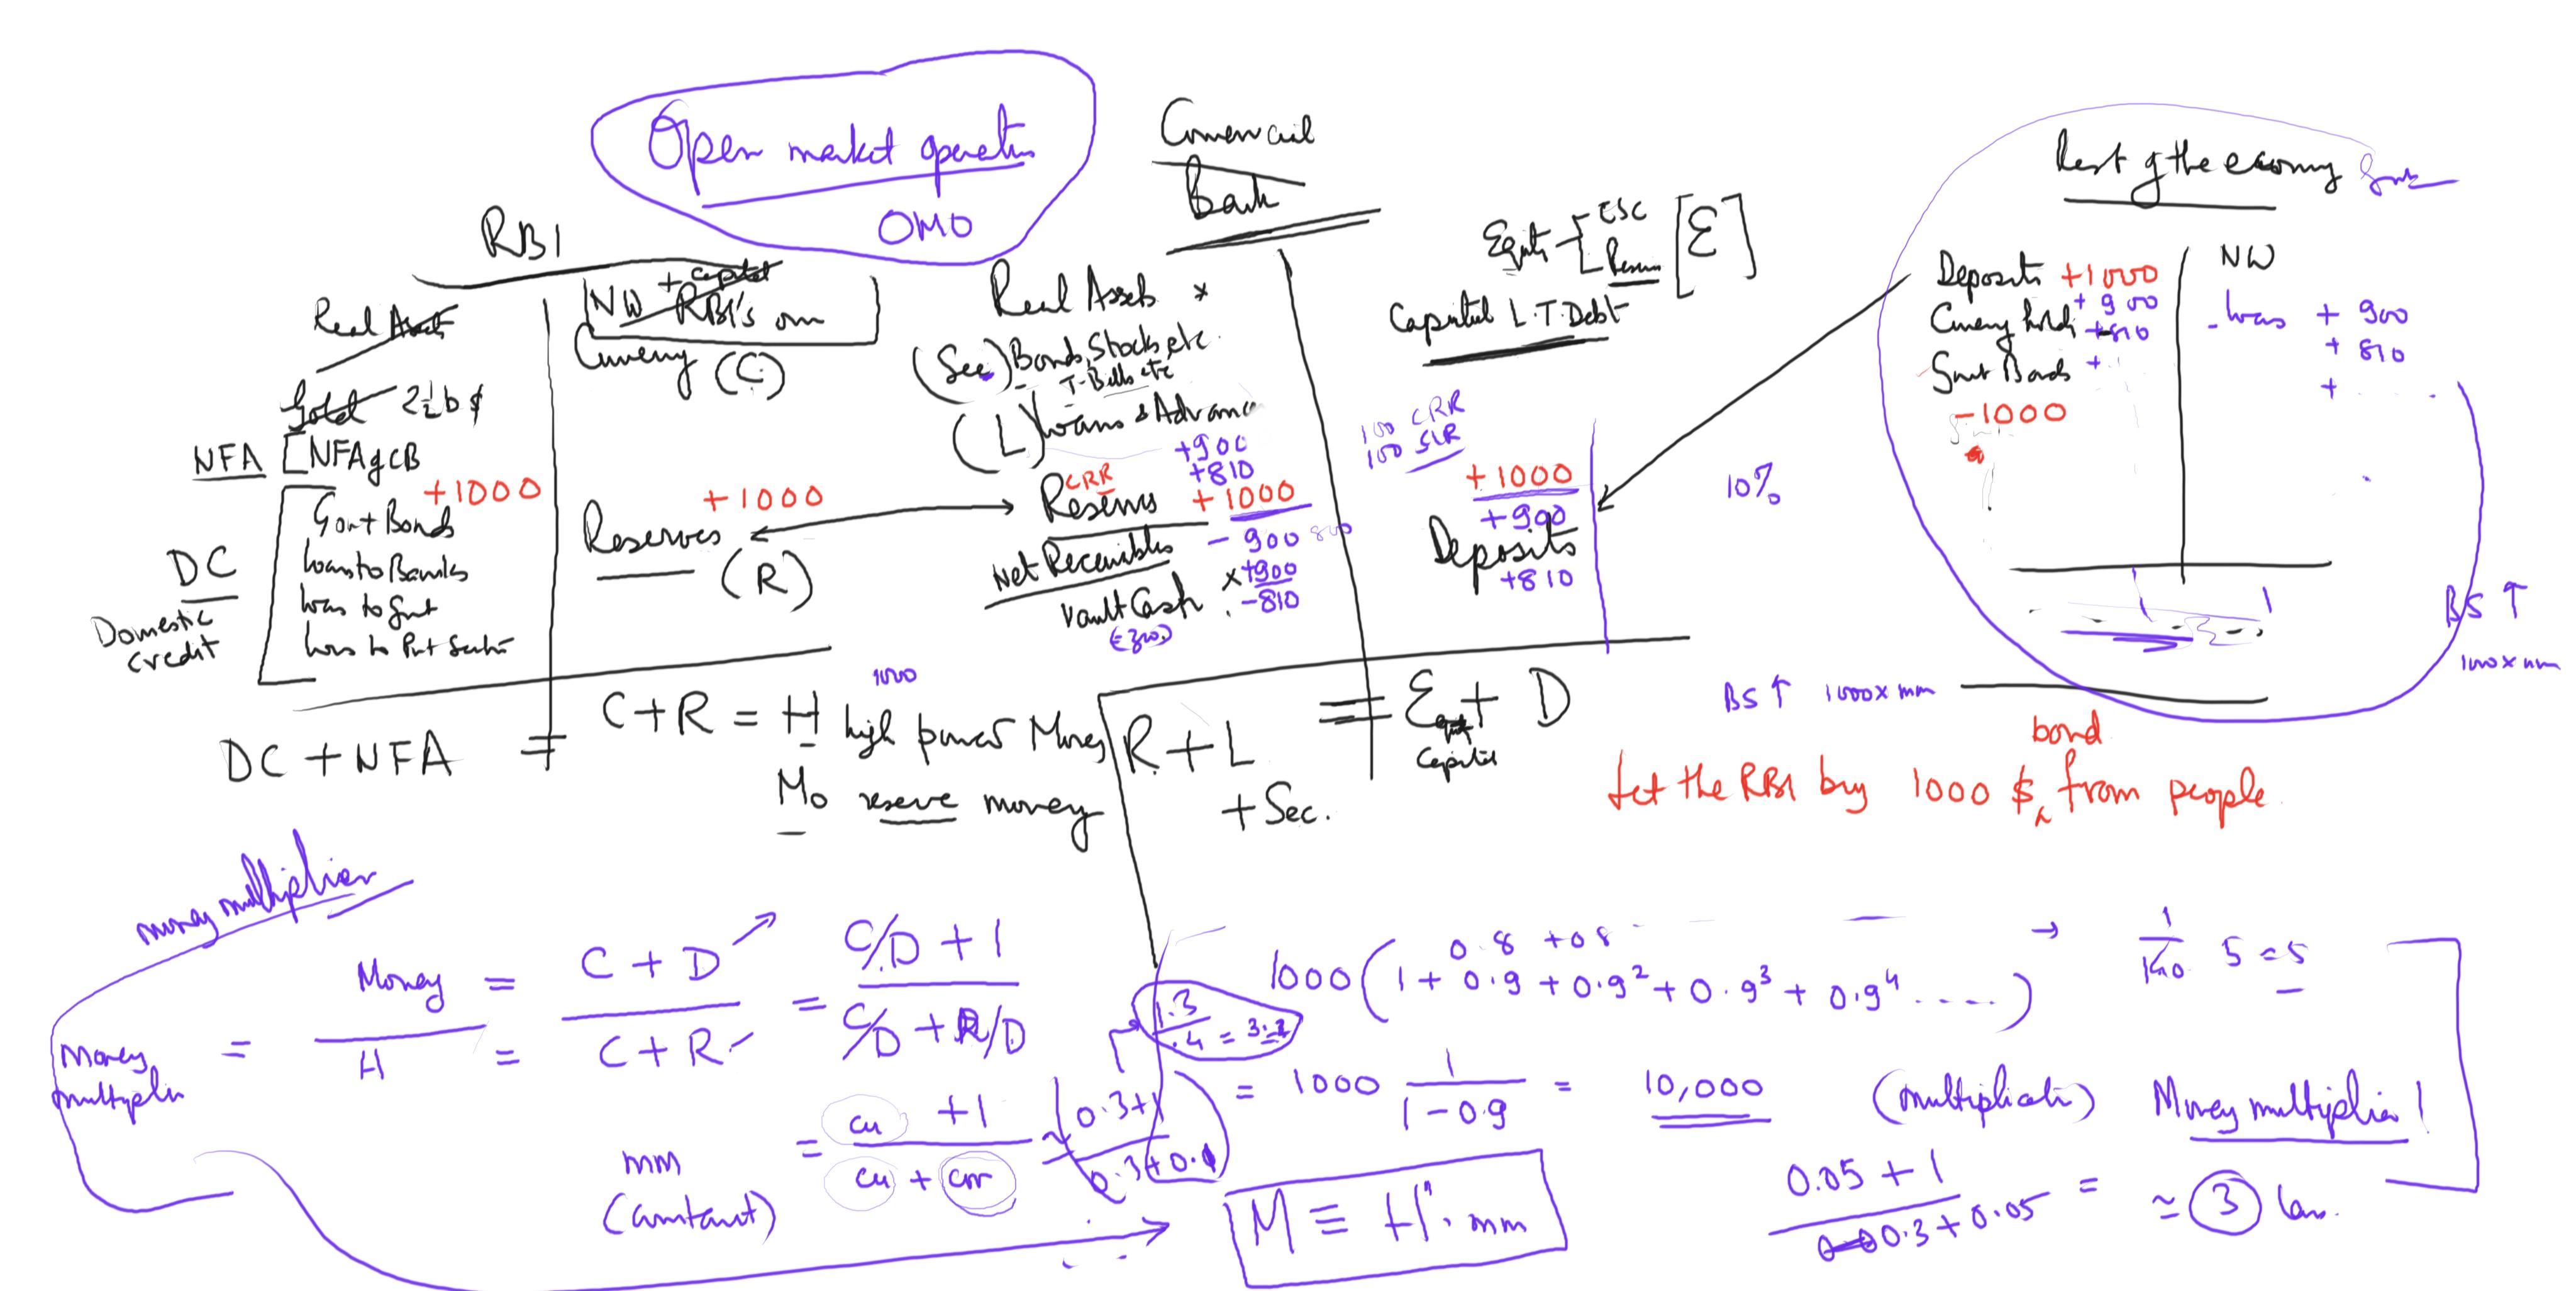 Open market operation
OMO
RBI
Real Assets
Gold 2½ b $
NFA
NFA of CB
DC
Domestic
Credit
Govt Bonds +1000
Loans to Banks
Loans to Govt
Loans to Pvt Sector
NW + capital
RBI's own
Currency (C)
Reserves +1000
(R)
DC + NFA =
C+R = H high power Money
1000
M0 reserve money
Commercial
Bank
Real Assets
(Sec) Bonds, Stocks, etc.
T-Bills etc
(L) Loans & Advance
+900
+810
CRR
Reserves +1000
- 900 800
Net Receivables
+900
Vault Cash - 810
(= zero)
Equity
ESC
Reserve
[E]
Capital L.T. Debt
100 CRR
100 SLR
+1000
+900
Deposits
+810
10%
R + L
+ Sec.
= E + D
Equity
Capital
Rest of the economy
Deposits +1000
+ 900
Currency hold +810
Govt Bonds +
-1000
NW
Loans + 900
+ 810
+ . . . .
BS ↑
1000 x mm
BS ↑ 1000 x mm
bond
Let the RBI buy 1000 $ from people
money multiplier
Money multiplier = Money / H = C + D / C + R = C/D + 1 / C/D + R/D
mm
(constant)
= cu + 1 / cu + crr
0.3+1 / 0.3+0.1
1.3 / .4 = 3.2
0.8 + 08
1000 (1 + 0.9 + 0.9² + 0.9³ + 0.9⁴ .....)
→ 5 = 5
= 1000 1 / 1 - 0.9 = 10,000
(multiplication) Money multiplier!
M ≡ H . mm
0.05 + 1 / 0.3 + 0.05 = ≃ 3